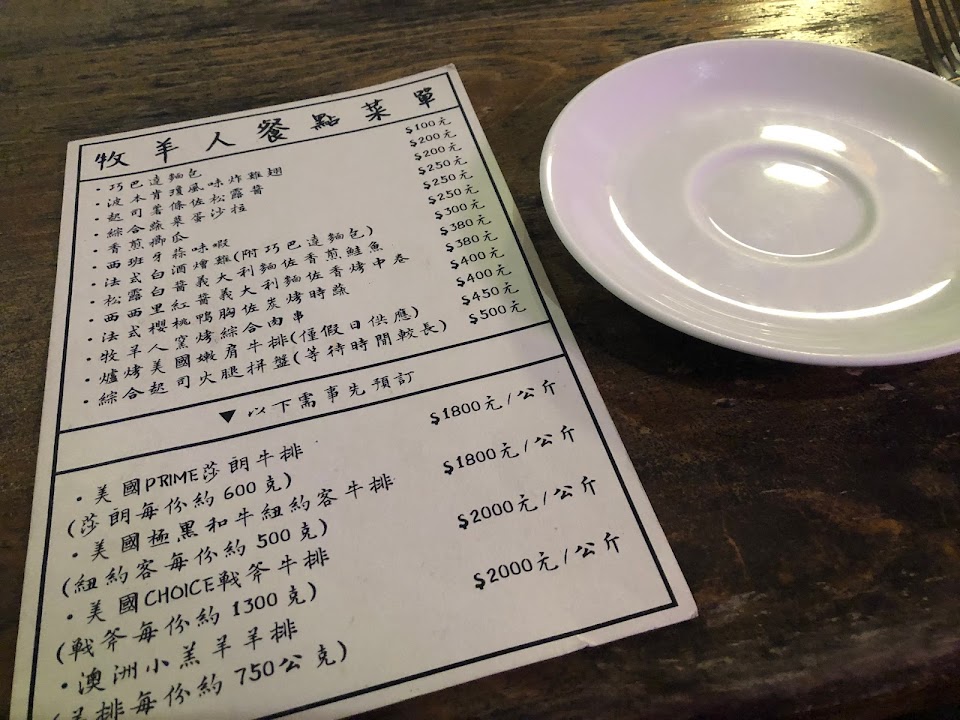 牧羊人餐點菜單
・巧巴達麵包 $100元
・波本肯瓊風味炸雞翅 $200元
・起司薯條佐松露醬 $200元
・綜合蔬菜蛋沙拉 $250元
・香煎櫛瓜 $250元
・西班牙蒜味蝦 $250元
・法式白酒燴雞(附巧巴達麵包) $300元
・松露白醬義大利麵佐香煎鮭魚 $380元
・西西里紅醬義大利麵佐香烤中卷 $380元
・法式櫻桃鴨胸佐炭烤時蔬 $400元
・牧羊人窯烤綜合肉串 $400元
・爐烤美國嫩肩牛排(僅假日供應) $450元
・綜合起司火腿拼盤(等待時間較長) $500元
▼以下需事先預訂
・美國PRIME莎朗牛排 $1800元/公斤
(莎朗每份約600克)
・美國極黑和牛紐約客牛排 $1800元/公斤
(紐約客每份約500克)
・美國CHOICE戰斧牛排 $2000元/公斤
(戰斧每份約1300克)
・澳洲小羔羊羊排 $2000元/公斤
(羊排每份約750公克)